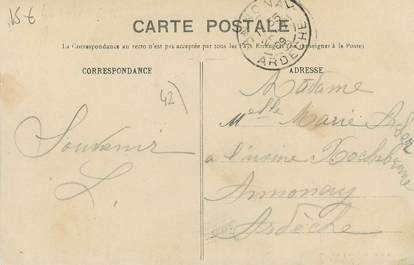 15€
CARTE POSTALE
La Correspondance au recto n'est pas acceptée par tous les Pays Étrangers (Se renseigner à la Poste)
ANNONAY
ARDÈCHE
CORRESPONDANCE
ADRESSE
42)
Souvenir
L.
Madame
Melle Marie
à l'usine
Annonay
Ardèche